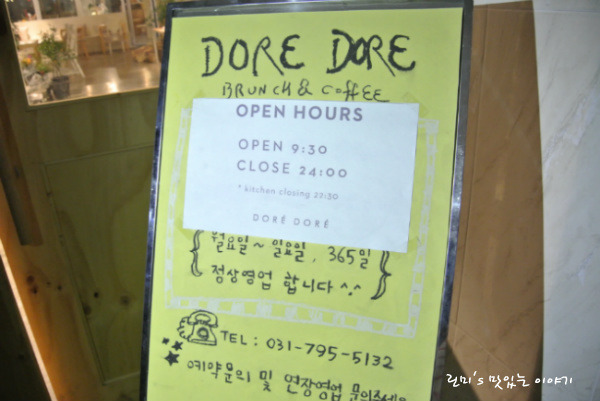 DORE DORE
BRUNCH & COFFEE
OPEN HOURS
OPEN 9:30
CLOSE 24:00
* kitchen closing 22:30
DORÉ DORÉ
월요일 ~ 일요일, 365일
정상영업 합니다 ^.^
TEL : 031-795-5132
예약문의 및 연장영업 문의주세요
린미's 맛있는 이야기